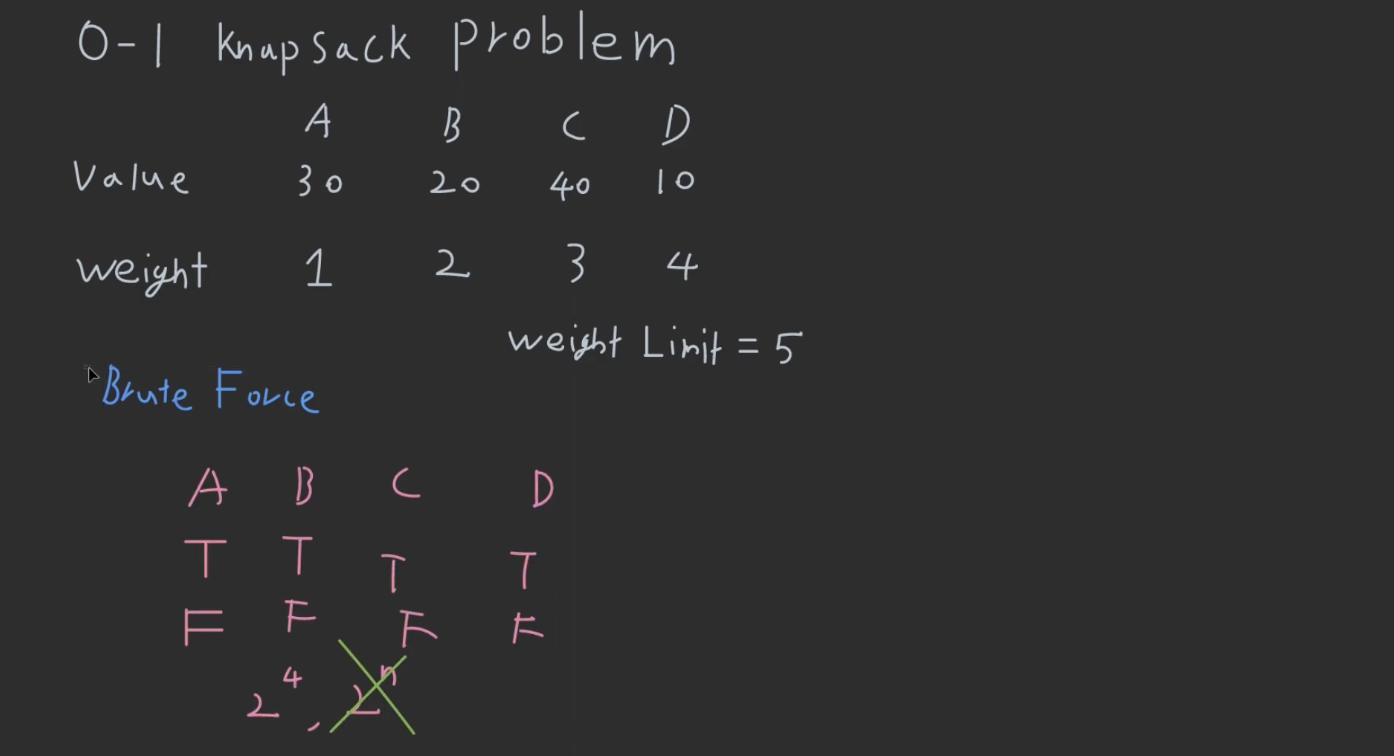 0-1 knapsack problem
A B C D
Value 30 20 40 10
weight 1 2 3 4
weight Limit = 5
Brute Force
A B C D
T T T T
F F F F
2⁴, 2ⁿ